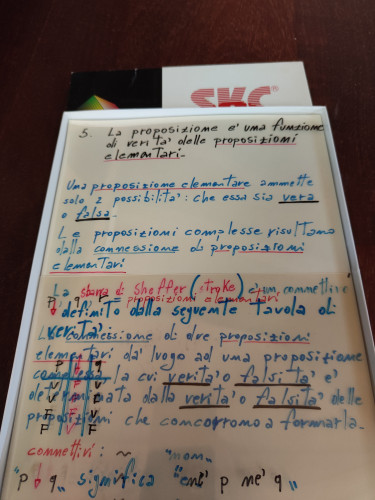 SKC®
5. La proposizione e' una funzione
di verita' delle proposizioni
elementari.
Una proposizione elementare ammette
solo 2 possibilita': che essa sia vera
o falsa.
Le proposizioni complesse risultano
dalla connessione di proposizioni
elementari
La sbarra di Sheffer (stroke) è un connettivo
p, q, r = proposizioni elementari
definito dalla seguente tavola di
verita'
La connessione di due proposizioni
elementari da' luogo ad una proposizione
complessa la cui verita' o falsita' e'
determinata dalla verita' o falsita' delle
proposizioni che concorrono a formarla.
connettivi: ~ "non"
"p ↓ q" significa "ne' p ne' q"